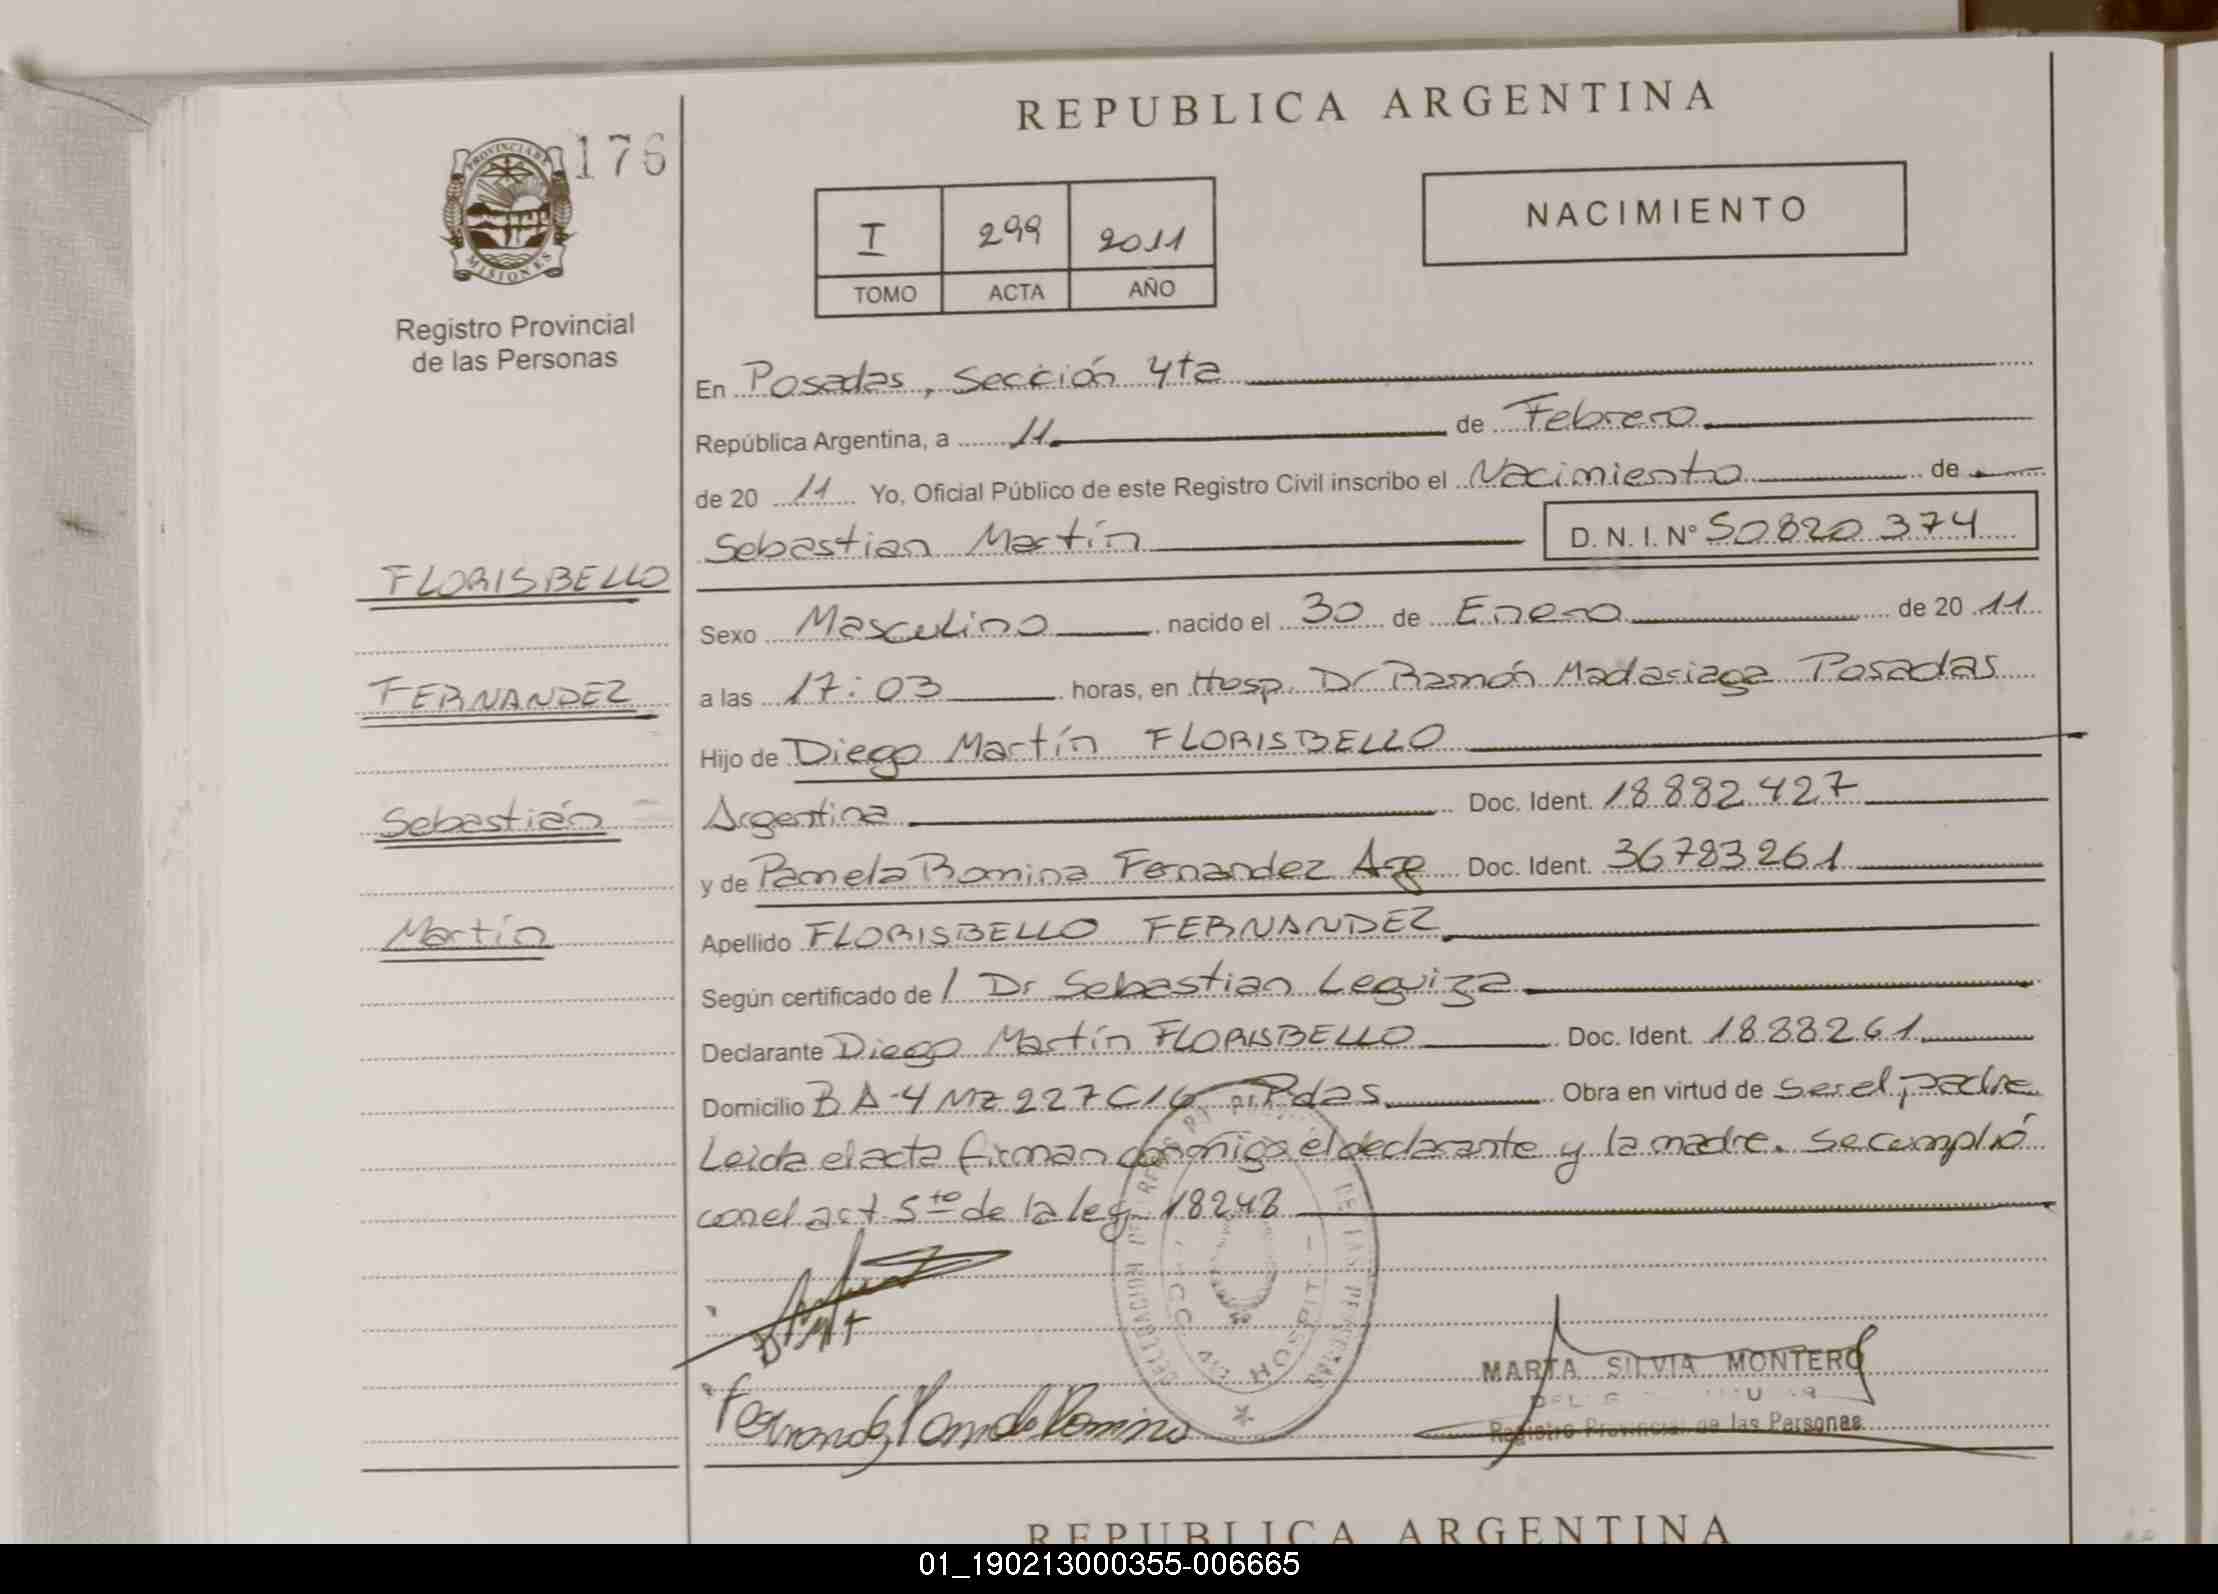 REPUBLICA ARGENTINA
PROVINCIA DE
MISIONES
176
Registro Provincial
de las Personas
I 299 2011
TOMO ACTA AÑO
NACIMIENTO
En Posadas, Sección 4ta
República Argentina, a 11 de Febrero
de 20 11 Yo, Oficial Público de este Registro Civil inscribo el Nacimiento de
Sebastian Martín D. N. I. N° 50820 374
FLORISBELLO
Sexo Masculino nacido el 30 de Enero de 20 11
FERNANDEZ
a las 17:03 horas, en Hosp. Dr Ramón Madariaga Posadas
Hijo de Diego Martín FLORISBELLO
Sebastián
Argentina Doc. Ident. 18882427
y de Pamela Romina Fernandez Arg Doc. Ident. 36783261
Martín
Apellido FLORISBELLO FERNANDEZ
Según certificado de / Dr Sebastian Leguiza
Declarante Diego Martín FLORISBELLO Doc. Ident. 18883261
Domicilio B A-4 Mz 227 C16 Pdas Obra en virtud de ser el padre
Leida el acta firman conmigo el declarante y la madre. Se cumplió
con el art 5to de la ley 18248
Fernandez Pamela Romina
HOSPIT
MARTA SILVIA MONTERO
Registro Provincial de las Personas
REPUBLICA ARGENTINA
01_190213000355-006665